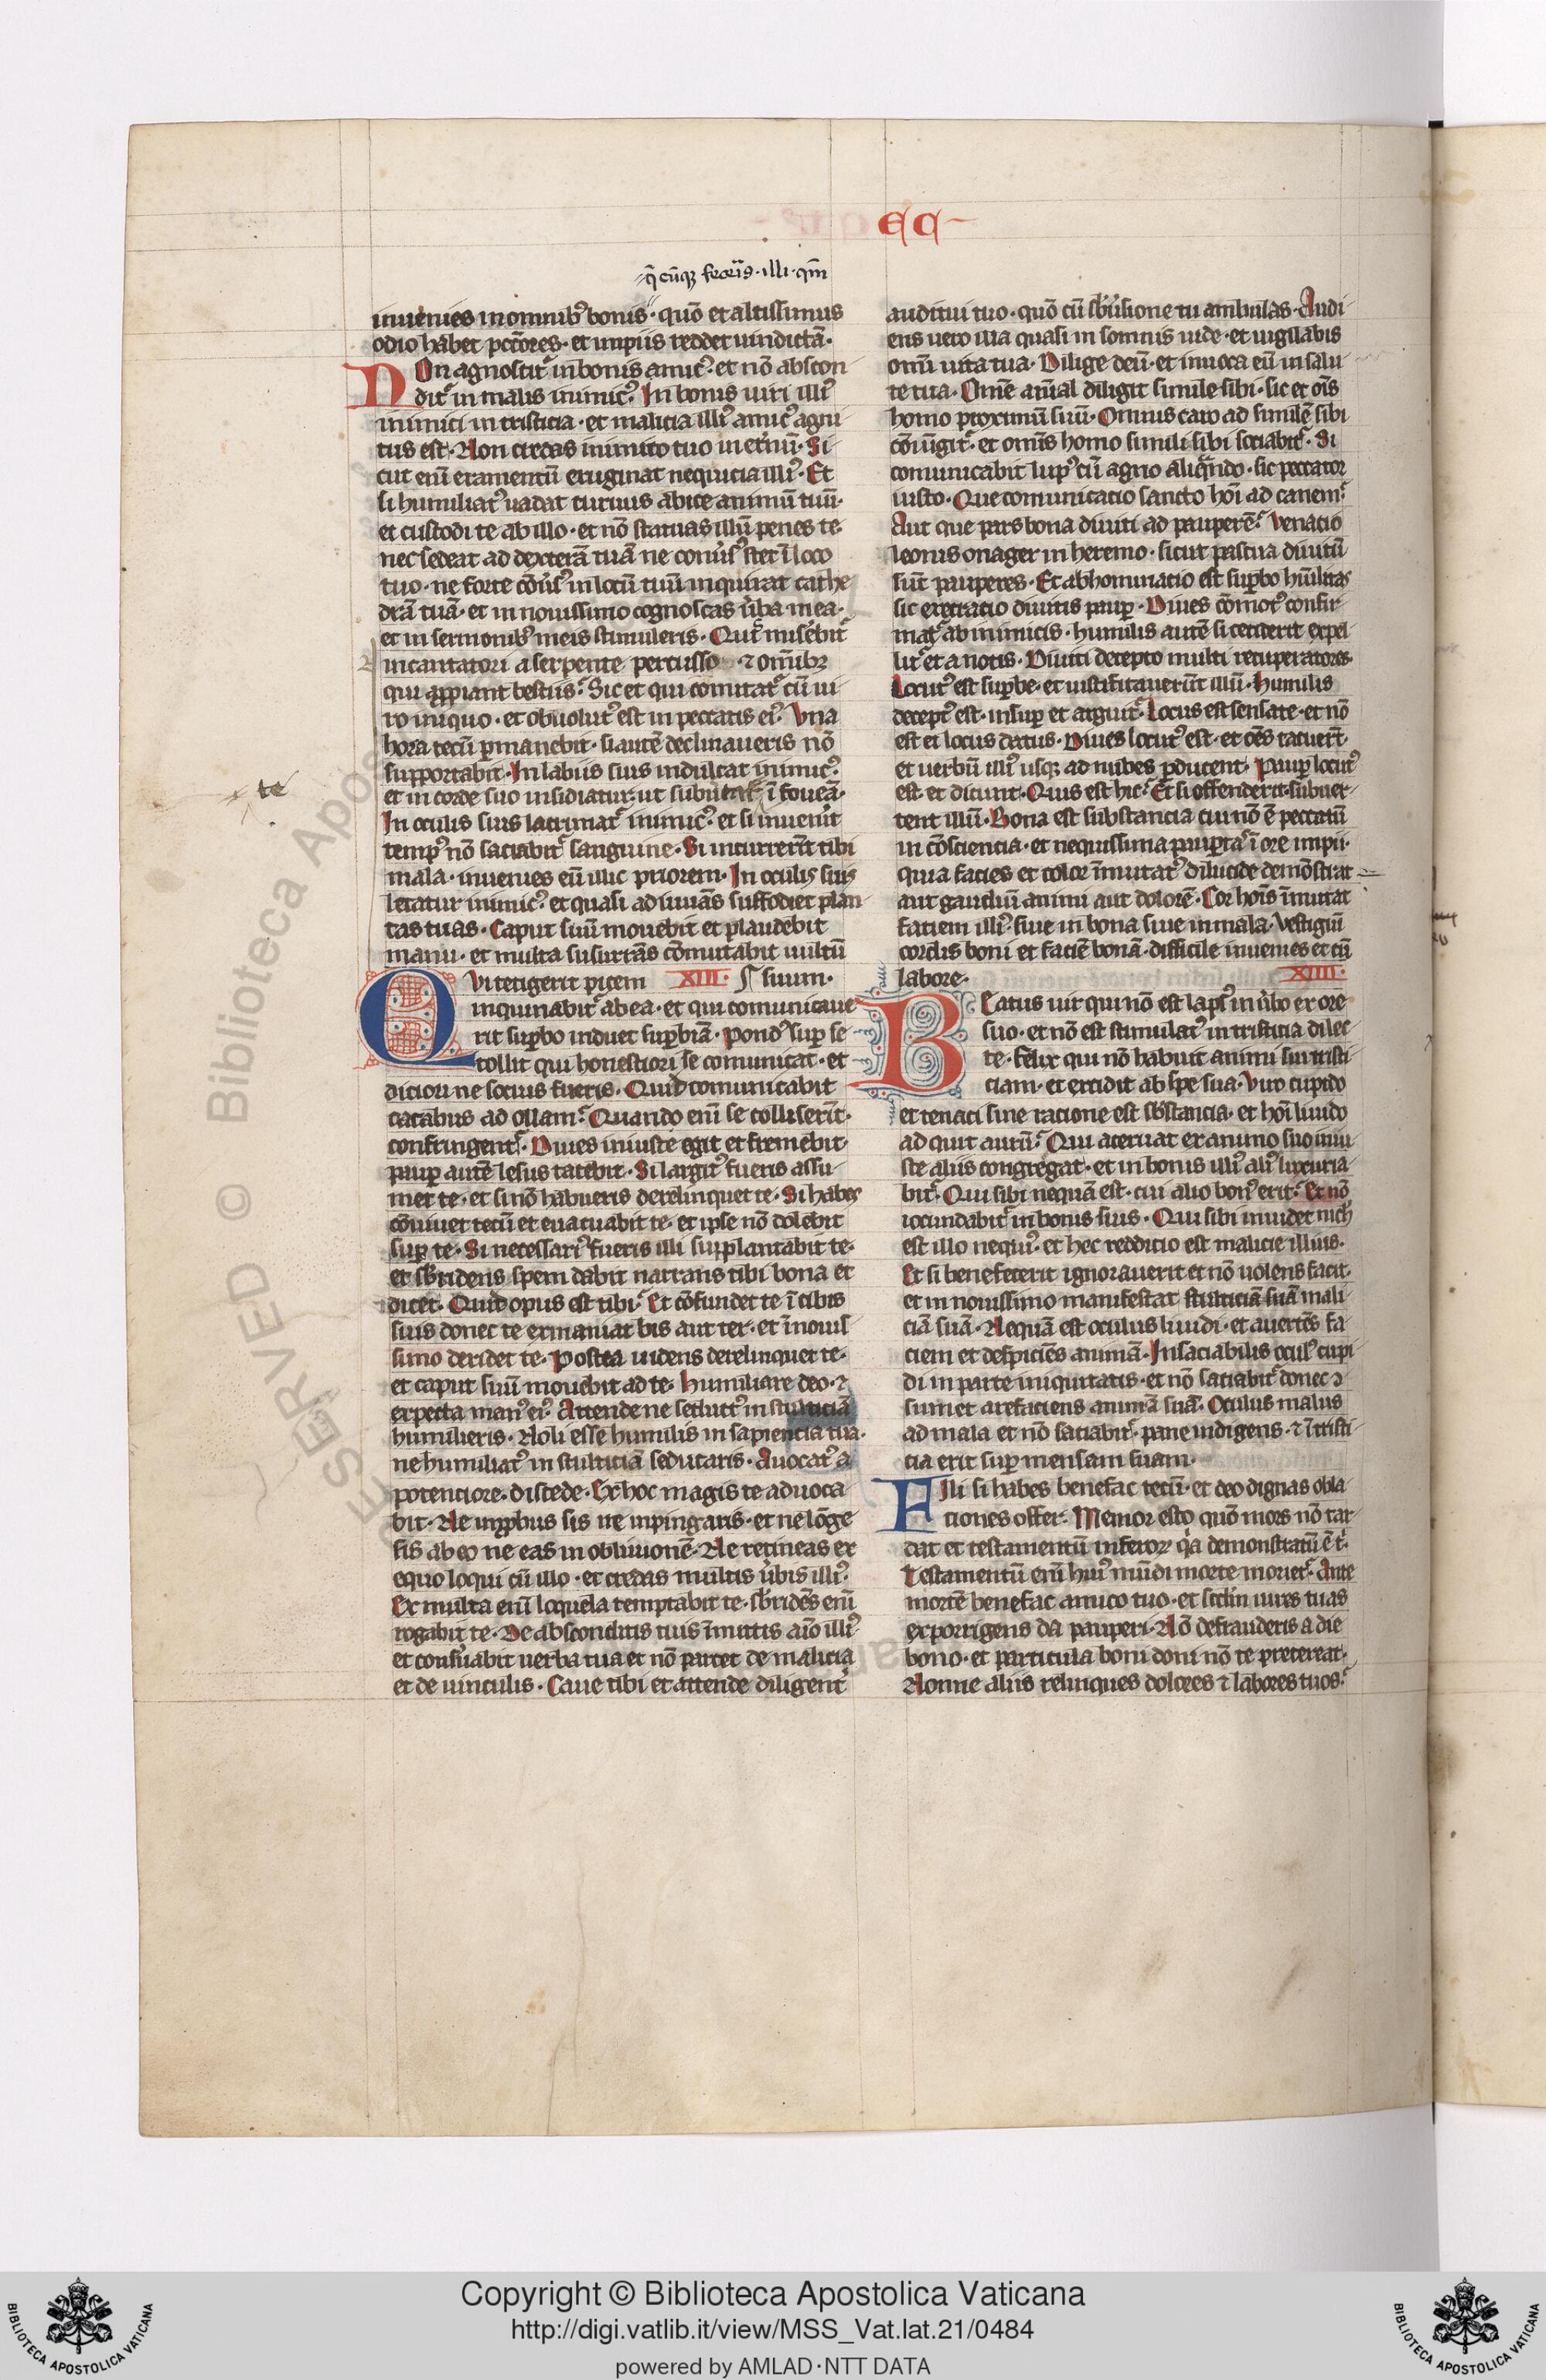 EC
q̄cūqꝫ feceris · illi · qm̄
inuenies in omnibꝰ bonis · quō et altissimus
odio habet pctōres · et impiis reddet uindictā ·
Non agnoscitᷣ in bonis amicꝰ · et nō abscon
ditᷣ in malis inimicꝰ · In bonis uiri illiꝰ
inimici in tristicia · et malicia illiꝰ amicꝰ agni
tus est · Non credas inimico tuo in et̄nū · Si
cut enī eramentū eruginat nequicia illiꝰ · Et
si humiliatꝰ uadat curuus abice animū tuū ·
et custodi te ab illo · et nō statuas illū penes te
nec sedeat ad dexterā tuā ne conūsꝰ stet ī loco
tuo · ne forte cōūsꝰ in locū tuū inquirat cathe
drā tuā · et in nouissimo cognoscas ūba mea ·
et in sermonibꝰ meis stimuleris · Quis misebitᷣ
incantatori a serpente percusso · ⁊ omībꝫ
qui appiant bestiis · Sic et qui comitatᷣ cū ui
ro iniquo · et obuolutꝰ est in peccatis eiꝰ · Vna
hora tecū ꝑmanebit · si autē declinaueris nō
supportabit · In labiis suis indulcat inimicꝰ ·
te
et in corde suo insidiatur ut subuertat ī foueā ·
In oculis suis lacrimatᷣ inimicꝰ · et si inuenit
tempꝰ nō saciabitᷣ sanguine · Si incurrerīt tibi
mala · inuenies eū illic priorem · In oculis suis
letatur inimicꝰ · et quasi adiuuās suffodiet plan
tas tuas · Caput suū mouebit et plaudebit
manu · et multa susurrās cōmutabit uultū
Qui tetigerit picem XIII · suum ·
inquinabitᷣ ab ea · et qui comunicaue
rit suꝑbo induet suꝑbiā · Pondꝰ suꝑ se
tollit qui honestiori se comunicat · et
diciori ne socius fueris · Quid comunicabit
cacabus ad ollam · Quando enī se colliserīt ·
confringentᷣ · Diues iniuste egit et fremebit ·
pauꝑ autē lesus tacebit · Si largitꝰ fueris assu
met te · et si nō habueris derelinquet te · Si habes
cōuiuet tecū et euacuabit te · et ipse nō dolebit
suꝑ te · Si necessariꝰ fueris illi supplantabit te ·
et sbridens spem dabit narrans tibi bona et
dicet · Quid opus est tibi · Et cōfundet te ī cibis
suis donec te exinaniat bis aut ter · et ī nouis
simo deridet te · Postea uidens derelinquet te ·
et caput suū mouebit ad te · Humiliare deo · ⁊
expecta manꝰ eiꝰ · Attende ne seductꝰ in stulticiā
humilieris · Noli esse humilis in sapiencia tua ·
ne humiliatꝰ in stulticiā seducaris · Auocatꝰ a
potenciore · discede · Ex hoc magis te aduoca
bit · Ne inꝓbus sis ne inpingaris · et ne lōge
sis ab eo ne eas in obliuionē · Ne retineas ex
equo loqui cū illo · et credas multis ūbis illiꝰ ·
Ex multa enī loquela temptabit te · sbridēs enī
rogabit te · De absconditis tuis īmitis aīo illiꝰ
et consūabit uerba tua et nō parcet de malicia
et de uinculis · Caue tibi et attende diligent̄
auditui tuo · quō cū sbūsione tu ambulas · Audi
ens uero illa quasi in somnis uide · et uigilabis
omī uita tua · Dilige deū · et inuoca eū in salu
te tua · Omē aīal diligit simile sibi · sic et oīs
homo proximū suū · Omnis caro ad similē sibi
cōiūgitᷣ · et omīs homo simili sibi sociabitᷣ · Si
comunicabit lupꝰ cū agno aliqndo · sic peccator
iusto · Que comunicacio sancto hoī ad canem ·
Aut que pars bona diuiti ad pauperē · Venatio
leonis onager in heremo · sicut pascua diuitū
sūt pauperes · Et abhominatio est suꝑbo hūilitas
sic execratio diuitis pauꝑ · Diues cōmotꝰ confir
matᷣ ab inimicis · humilis autē si ceciderit expel
litᷣ et a notis · Diuiti decepto multi recuperatores
Locutꝰ est suꝑbe · et iustificauerūt illū · Humilis
deceptꝰ est · insuꝑ et arguitᷣ · Locus est sensate · et nō
est ei locus datus · Diues locutꝰ est · et oēs tacuerīt ·
et uerbū illiꝰ usqꝫ ad nubes ꝑducent · Pauꝑ locutꝰ
est et dicunt · Quis est hic · Et si offenderit · subuer
tent illū · Bona est substancia cui nō ē peccatū
in cōsciencia · et nequissima pauꝑtas ī ore impii ·
quia facies et color īmutatꝰ dilucide demōstrat
aut gaudiū animi aut dolorē · Cor hoīs īmutat
faciem illiꝰ · siue in bona siue in mala · Vestigiū
cordis boni et faciē bonā · difficile inuenies et cū
labore · XIIII ·
Beatus uir qui nō est lapsꝰ in ūbo ex ore
suo · et nō est stimulatꝰ in tristicia delic
te · Felix qui nō habuit animi sui tristi
ciam · et excidit ab spe sua · Viro cupido
et tenaci sine racione est sbstancia · et hoī liuido
ad quit aurū · Qui aceruat ex animo suo iniu
ste aliis congregat · et in bonis illiꝰ aliꝰ luxuria
bitᷣ · Qui sibi nequā est · cui alio bonꝰ erit · Et nō
iocundabitᷣ in bonis suis · Qui sibi inuidet nich
est illo nequiꝰ · et hec redditio est malicie illius ·
Et si benefecerit ignorauerit et nō uolens facit ·
et in nouissimo manifestat stulticiā suā mali
ciā suā · Nequā est oculus liuidi · et auertēs fa
ciem et despiciēs animā · Insaciabilis oculꝰ cupi
di in parte iniquitatis · et nō saciabitᷣ donec ↄ
sumet arefaciens animā suā · Oculus malus
ad mala et nō saciabitᷣ · pane indigens · ⁊ ī tristi
cia erit suꝑ mensam suam ·
Fili si habes benefac tecū · et deo dignas obla
ciones offer · Memor esto quō mors nō tar
dat et testamentū inferoꝝ qa demonstratū ē t̄ ·
Testamentū enī huiꝰ mūdi morte morietᷣ · Ante
mortē benefac amico tuo · et scdm uires tuas
exporrigens da pauperi · Nō defrauderis a die
bono · et particula boni doni nō te pretereat ·
Nonne aliis relinques dolores ⁊ labores tuos ·
RESERVED © Biblioteca Apos
Copyright © Biblioteca Apostolica Vaticana
http://digi.vatlib.it/view/MSS_Vat.lat.21/0484
powered by AMLAD·NTT DATA
BIBLIOTECA APOSTOLICA VATICANA
BIBLIOTECA APOSTOLICA VATICANA